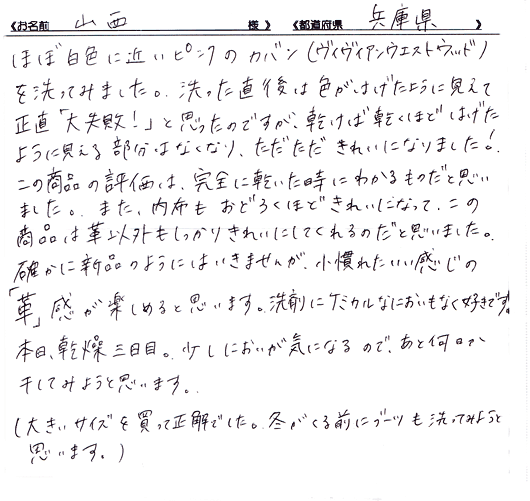 《お名前 山西 様》 《都道府県 兵庫県 》
ほぼ白色に近いピンクのカバン(ヴィヴィアンウエストウッド)
を洗ってみました。洗った直後は色がはげたように見えて
正直「大失敗!」と思ったのですが、乾けば乾くほどはげた
ように見える部分はなくなり、ただただきれいになりました!
この商品の評価は、完全に乾いた時にわかるものだと思い
ました。また、内布もおどろくほどきれいになって、この
商品は革以外もしっかりきれいにしてくれるのだと思いました。
確かに新品のようにはいきませんが、小慣れたいい感じの
「革」感が楽しめると思います。洗剤にケミカルなにおいもなく好きです。
本日、乾燥三日目。少しにおいが気になるので、あと何日か
干してみようと思います。
(大きいサイズを買って正解でした。冬がくる前にブーツも洗ってみようと
思います。)